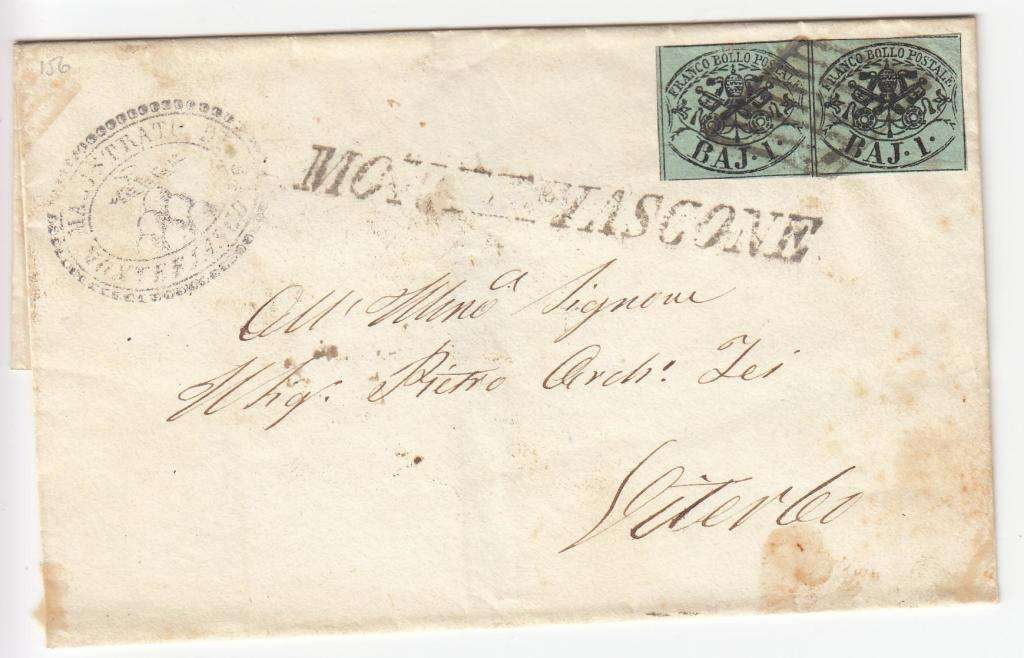 156
FRANCO BOLLO POSTALE
BAJ. 1.
FRANCO BOLLO POSTALE
BAJ. 1.
MAGISTRATO
MONTEFIASCONE
All' Illmo Signore
Sig. Pietro Arch. Zei
Viterbo